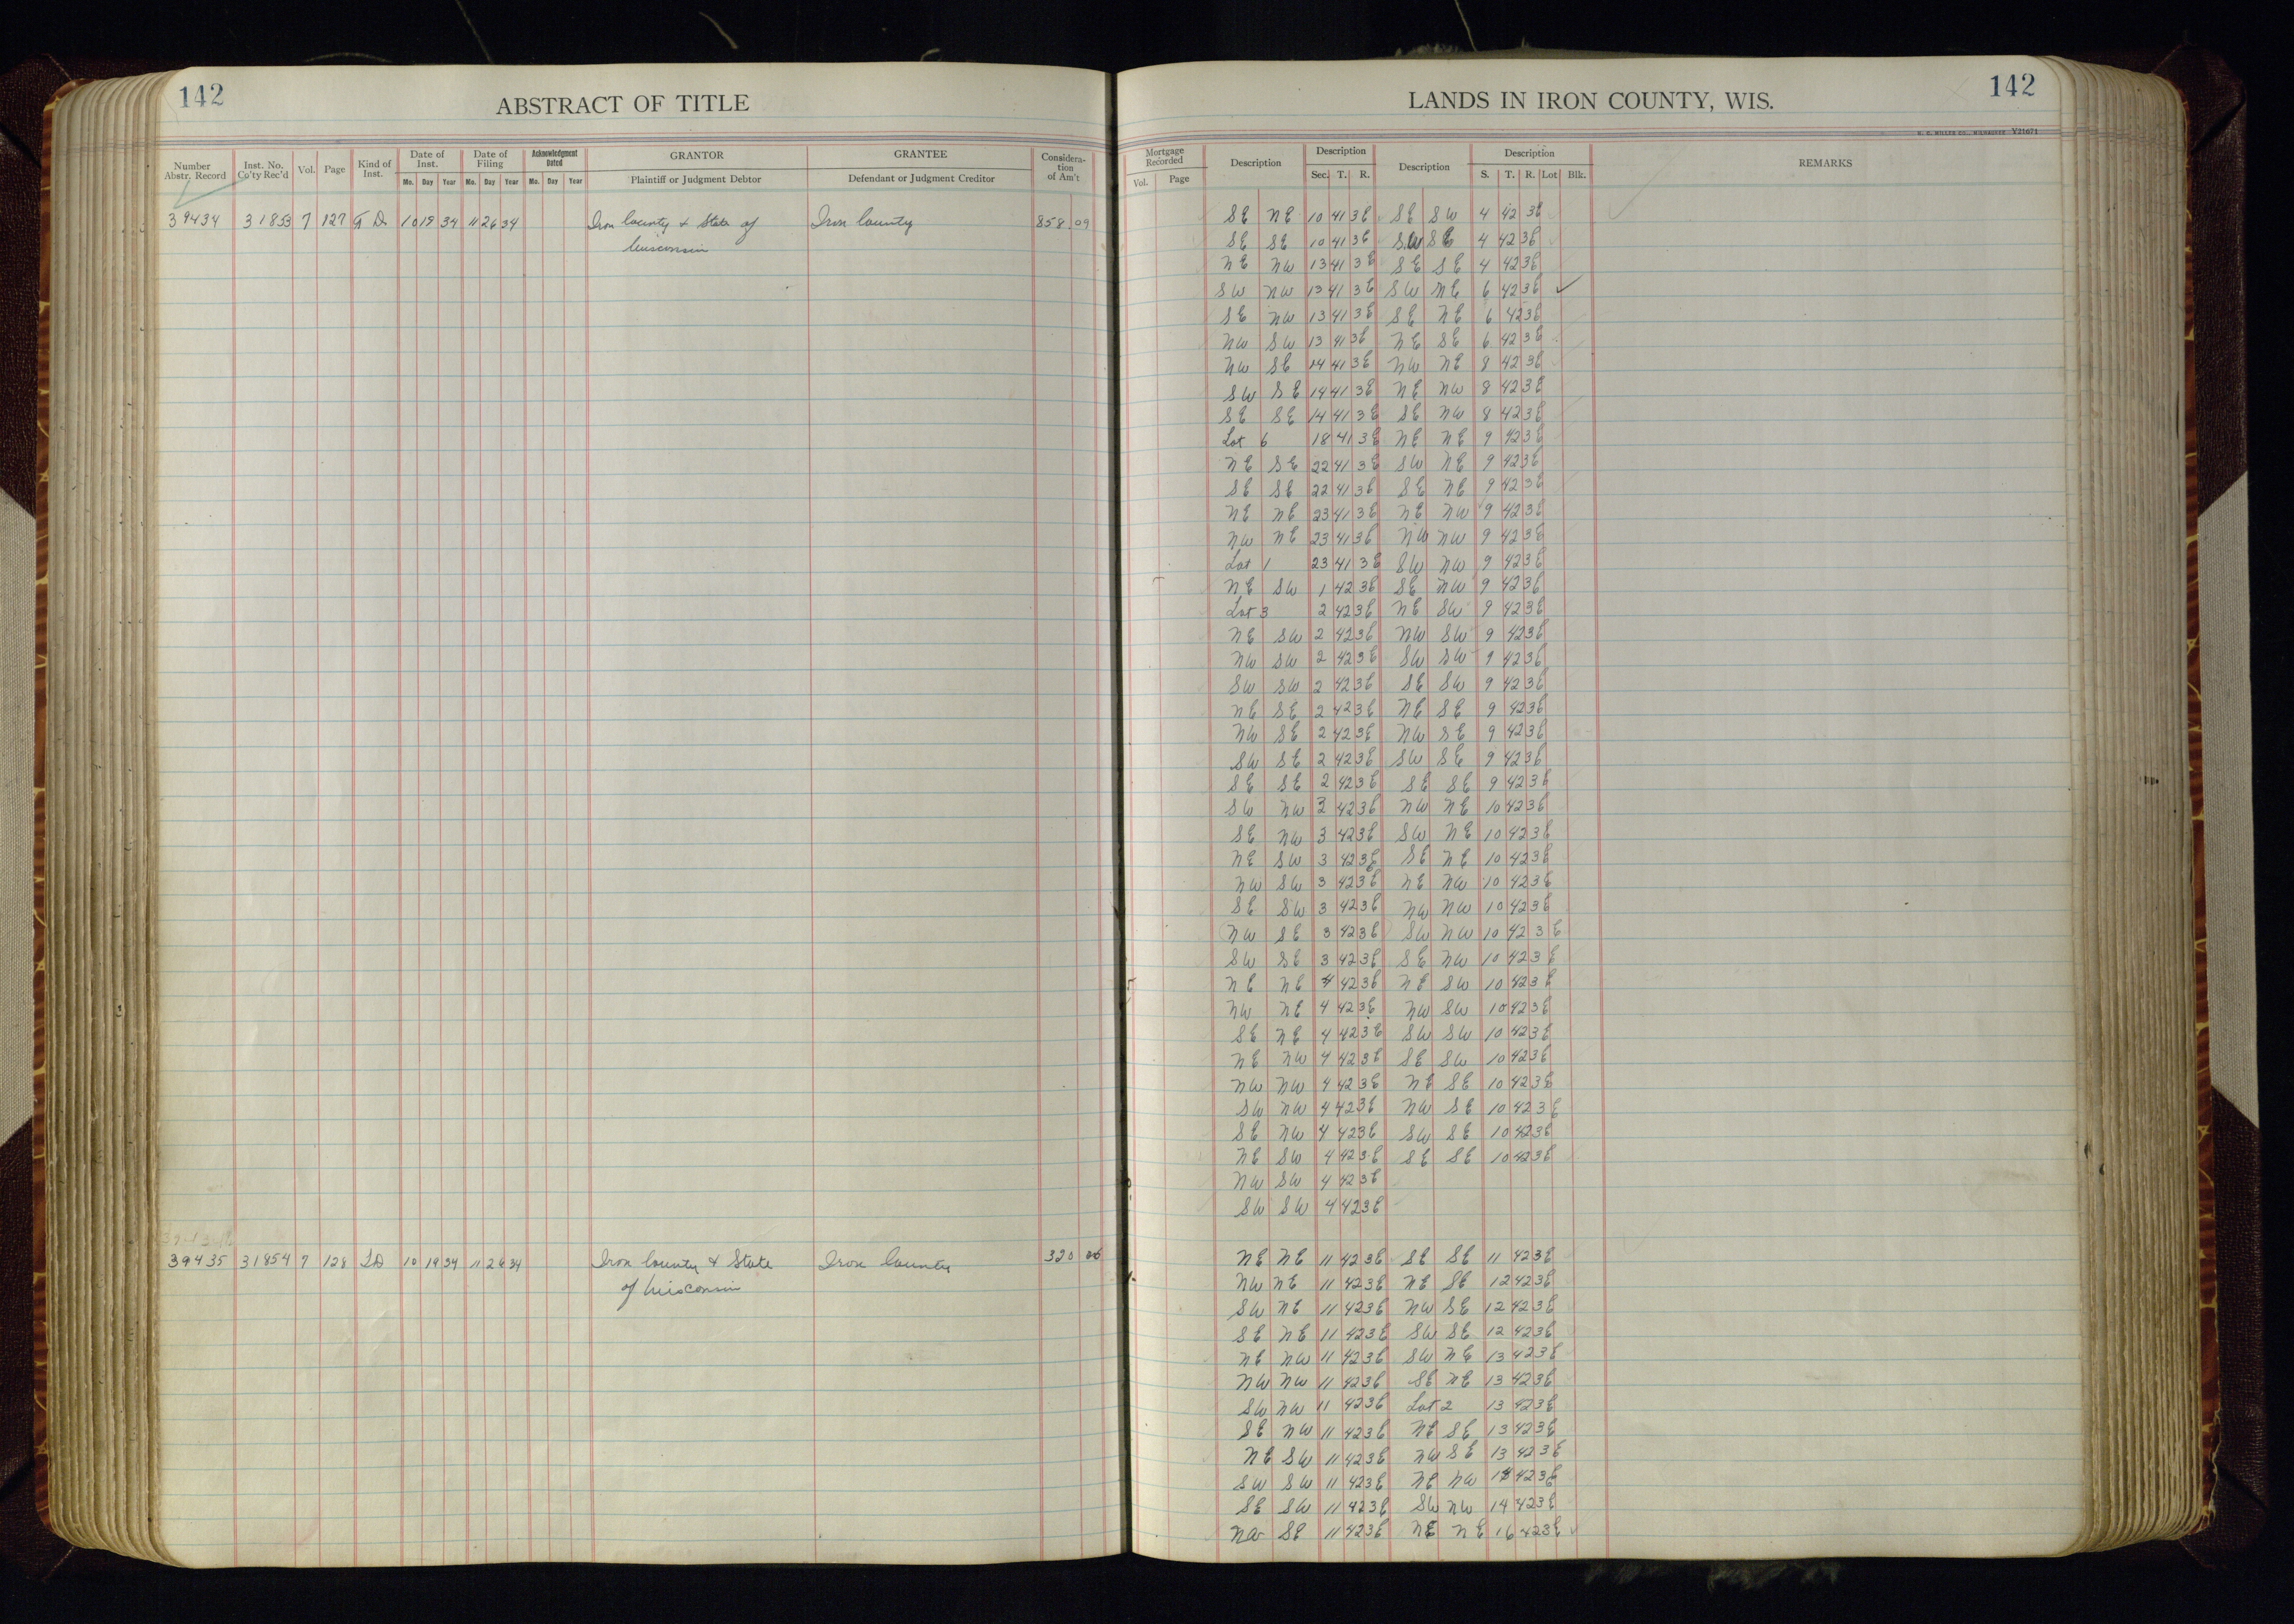 142
ABSTRACT OF TITLE
Number Abstr. Record
Inst. No. Co'ty Rec'd
Vol.
Page
Kind of Inst.
Date of Inst.
Mo. Day Year
Date of Filing
Mo. Day Year
Acknowledgment Dated
Mo. Day Year
GRANTOR
Plaintiff or Judgment Debtor
GRANTEE
Defendant or Judgment Creditor
Considera-
tion
of Am't
39434 31853 7 127 T D 10 19 34 11 26 34 Iron County & State of Iron County 858 09
Wisconsin
39435 31854 7 128 T D 10 19 34 11 26 34 Iron County & State Iron County 320
of Wisconsin
LANDS IN IRON COUNTY, WIS.
142
H. C. MILLER CO., MILWAUKEE Y21671
Mortgage Recorded
Vol. Page
Description
Description
Sec. T. R.
Description
Description
S. T. R. Lot Blk.
REMARKS
SE NE 10 41 3E SE SW 4 42 3E
SE SE 10 41 3E SW SE 4 42 3E
NE NW 13 41 3E SE SE 4 42 3E
SW NW 13 41 3E SW NE 6 42 3E ✓
SE NW 13 41 3E SE NE 6 42 3E
NW SW 13 41 3E NE SE 6 42 3E
NW SE 14 41 3E NW NE 8 42 3E
SW SE 14 41 3E NE NW 8 42 3E
SE SE 14 41 3E SE NW 8 42 3E
Lot 6 18 41 3E NE NE 9 42 3E
NE SE 22 41 3E SW NE 9 42 3E
SE SE 22 41 3E SE NE 9 42 3E
NE NE 23 41 3E NE NW 9 42 3E
NW NE 23 41 3E NW NW 9 42 3E
Lot 1 23 41 3E SW NW 9 42 3E
NE SW 1 42 3E SE NW 9 42 3E
Lot 3 2 42 3E NE SW 9 42 3E
NE SW 2 42 3E NW SW 9 42 3E
NW SW 2 42 3E SW SW 9 42 3E
SW SW 2 42 3E SE SW 9 42 3E
NE SE 2 42 3E NE SE 9 42 3E
NW SE 2 42 3E NW SE 9 42 3E
SW SE 2 42 3E SW SE 9 42 3E
SE SE 2 42 3E SE SE 9 42 3E
SW NW 3 42 3E NW NE 10 42 3E
SE NW 3 42 3E SW NE 10 42 3E
NE SW 3 42 3E SE NE 10 42 3E
NW SW 3 42 3E NE NW 10 42 3E
SE SW 3 42 3E NW NW 10 42 3E
NW SE 3 42 3E SW NW 10 42 3E
SW SE 3 42 3E SE NW 10 42 3E
NE NE 4 42 3E NE SW 10 42 3E
NW NE 4 42 3E NW SW 10 42 3E
SE NE 4 42 3E SW SW 10 42 3E
NE NW 4 42 3E SE SW 10 42 3E
NW NW 4 42 3E NE SE 10 42 3E
SW NW 4 42 3E NW SE 10 42 3E
SE NW 4 42 3E SW SE 10 42 3E
NE SW 4 42 3E SE SE 10 42 3E
NW SW 4 42 3E
SW SW 4 42 3E
NE NE 11 42 3E SE SE 11 42 3E
NW NE 11 42 3E NE SE 12 42 3E
SW NE 11 42 3E NW SE 12 42 3E
SE NE 11 42 3E SW SE 12 42 3E
NE NW 11 42 3E SW NE 13 42 3E
NW NW 11 42 3E SE NE 13 42 3E
SW NW 11 42 3E Lot 2 13 42 3E
SE NW 11 42 3E NE SE 13 42 3E
NE SW 11 42 3E NW SE 13 42 3E
SW SW 11 42 3E NE NW 14 42 3E
SE SW 11 42 3E SW NW 14 42 3E
NW SE 11 42 3E NE NE 16 42 3E